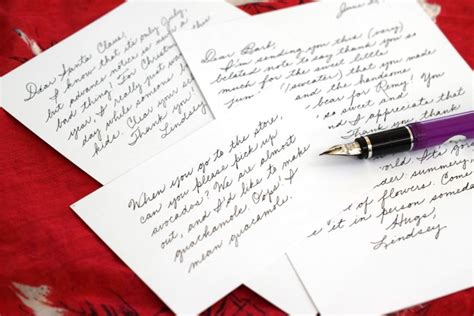 Dear Santa Claus,
I know that its only July,
but advance notice is never a
bad thing. For Christmas
year, I really just want
day while someone
kids. Clear your
Thank you!
Lindsey
June
Dear Barb,
I'm sending you this (very)
belated note to say thank you so
much for the sweet little
(sweater) that you made
and the handsome
bear for Remy! You
and I appreciate that
Thank you thank
When you go to the store,
can you please pick up
avocados? We are almost
out, and I'd like to make
guachamole. Oops! I
mean guacamole.
summery
of flowers. Come
it in person
Hugs,
Lindsey